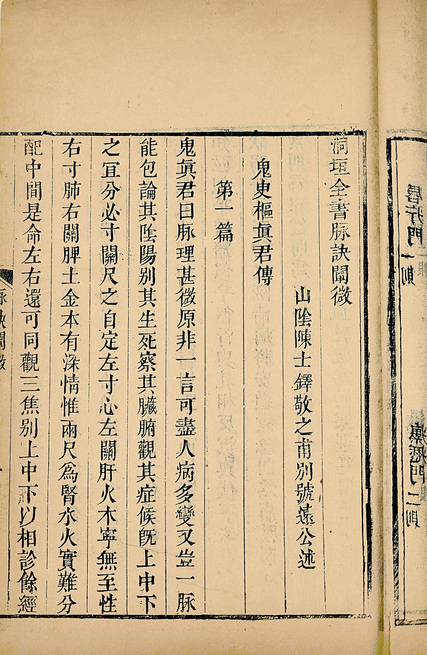 洞垣全書脉訣闡微
山陰陳士鐸敬之甫別號遠公述
鬼史樞真君傳
第一篇
鬼眞君曰脉理甚微原非一言可盡人病多變又豈一脉
能包論其陰陽別其生死察其臟腑觀其症候旣上中下
之宜分必寸關尺之自定左寸心左關肝火木寧無至性
右寸肺右關脾土金本有深情惟兩尺爲腎水火實難分
配中間是命左右還可同觀三焦別上中下以相診餘經
脉訣闡微
門一則
門二則